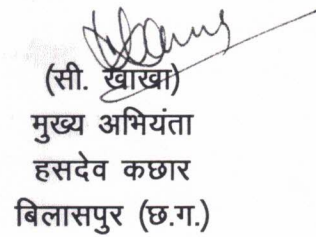 (सी. खाखा)
मुख्य अभियंता
हसदेव कछार
बिलासपुर (छ.ग.)